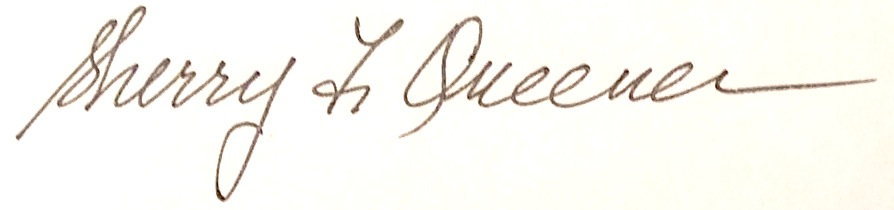 Sherry F. Queener